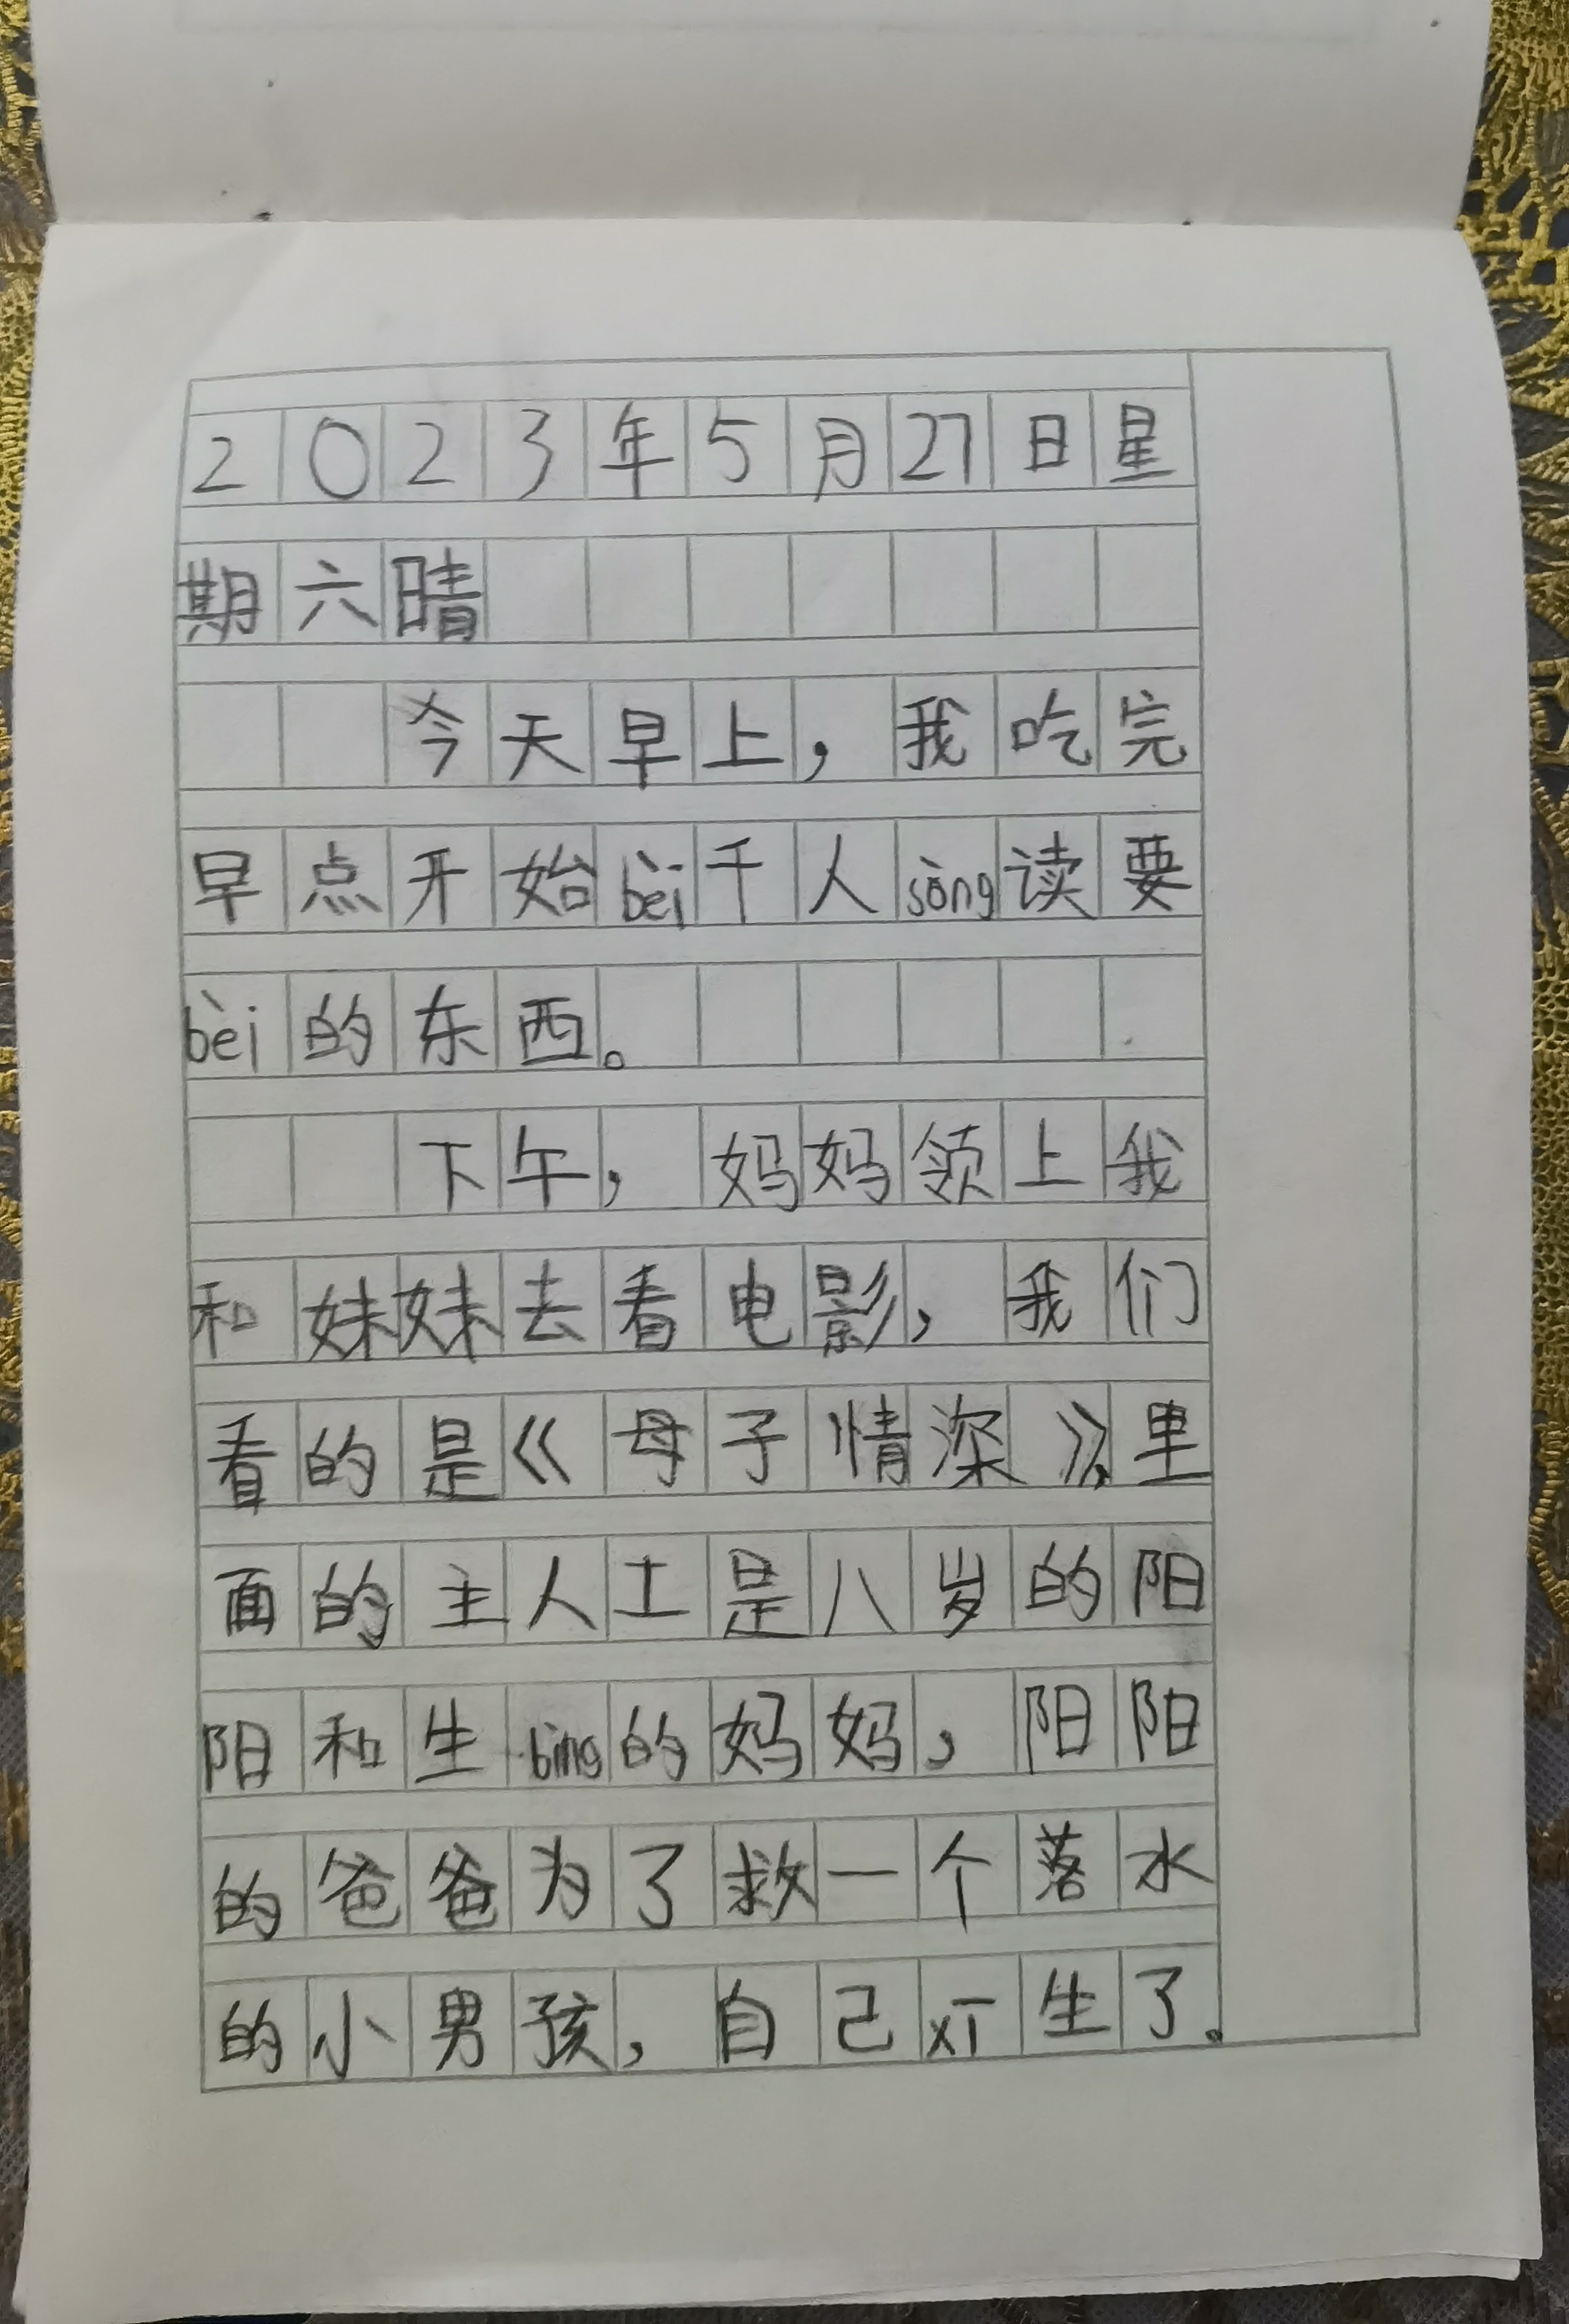 2023年5月27日星
期六晴
今天早上，我吃完
早点开始bèi千人sòng读要
bèi的东西。
下午，妈妈领上我
和妹妹去看电影，我们
看的是《母子情深》，里
面的主人工是八岁的阳
阳和生bìng的妈妈，阳阳
的爸爸为了救一个落水
的小男孩，自己xī生了。